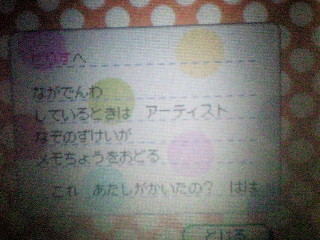 とりすへ
ながでんわ
しているときは　アーティスト
なぞのずけいが
メモちょうをおどる
これ　あたしがかいたの？　はは
とじる